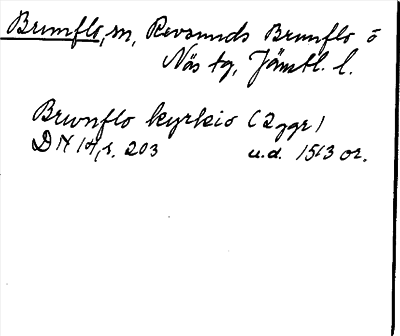 Brunflo, sn, Revsunds Brunflo o
Näs tg, Jämtl. l.
Brwnflo kyrkio (2 ggr)
DN 14, s. 203 u.d. 1513 or.